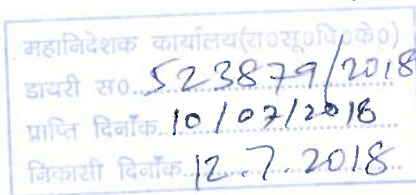 महानिदेशक कार्यालय(रा०सू०वि०के०)
डायरी स०..523879/2018
प्राप्ति दिनाँक..10/07/2018
निकासी दिनाँक..12.7.2018